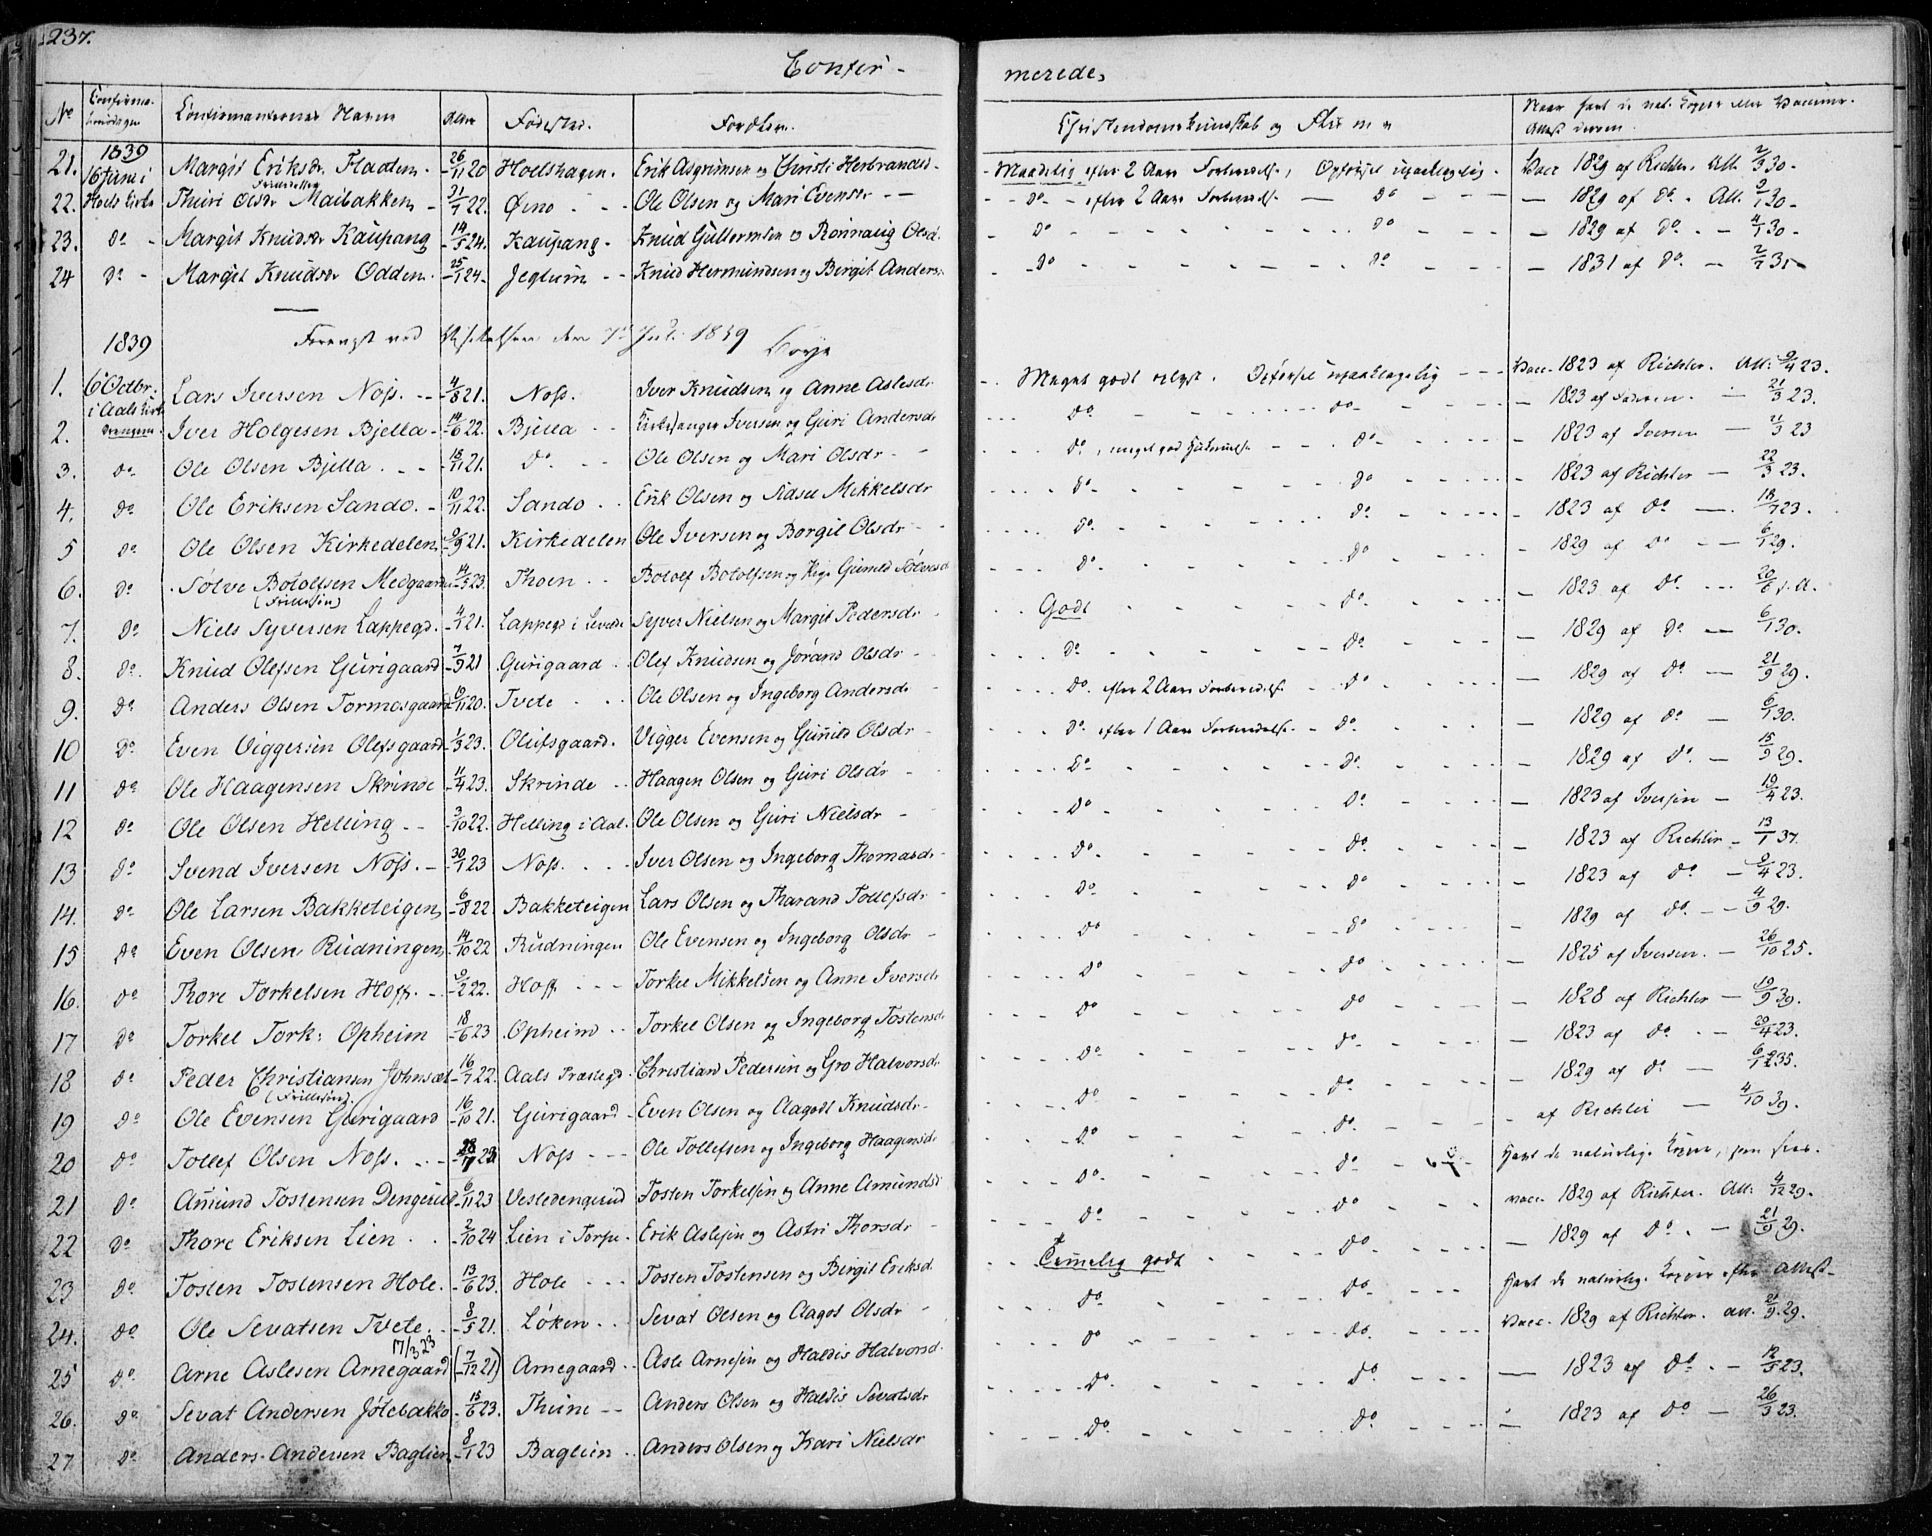 237.
Confir-
merede,
No
Confirma-
tionsdagen
Confirmanternes Navne
Alder
Fødested.
Forældre.
Christendomskundskab og
Naar havt de nat. Kopper eller Vaccine.
Attest derom.
21. 1839 16 Juni i Margit Eriksdr Fladten 26/11 20 Hoelshagen. Erik Asgrimsen og Christi Herbrandsd - Maadelig efter 2 Aars Forberedelse, Opførsel upaaklagelig - Vacc 1829 af Richter. Att. 2/3 30.
22. Hoels Kirke Thuri Olsdr Maibakken 31/7 22. Øino Ole Olsen og Mari Evensdr - do - efter 2 Aars Forberedelse - do - 1829 af do. Att. 9/1 30.
23. do Margit Knudsdr Kaupang 14/5 24. Kaupang Knud Gulbrandsen og Rønnaug Olsd. - do - do - 1829 af do. - 4/1 30.
24 do Margit Knudsdr Odden. 25/1 24. Jegleim Knud Hermundsen og Birgit Andersd - do - do - 1831 af do - 2/7 31
1839 Forevist ved Visitatsen den 7de Juli 1839
1. 6 Octbr. Lars Iversen Noss. 4/8 21. Noss. Iver Knudsen og Anne Aslesdr - Meget godt oplyst. Opførsel upaaklagelig - Vacc. 1823 af Richter. Att: 9/4 23.
2. i Aals Kirke Drengene Iver Holgesen Bjella 14/6 22. Bjella Kirkesanger Iversen og Guri Andersdr - do - do - 1823 af Faderen. - 21/3 23.
3. do Ole Olsen Bjella. 15/11 21. do Ole Olsen og Mari Olsdr - do, meget god Hukommelse - do - 1823 af Iversen - 21/3 23
4. do Ole Eriksen Sando. 10/11 22. Sando Erik Olsen og Sidsel Mikkelsdr - do - do - 1823 af Richter - 22/3 23.
5 do Ole Olsen Kirkedelen 9/9 21. Kirkedelen Ole Iversen og Borgil Olsdr - do - do - 1823 af do - 18/7 23.
6. do Sølve Botolfsen Medgaarden (Frillesøn) 14/5 23. Thoen Botolf Botolfsen og Pige Gunild Sølvesd - do - do - 1829 af do - 6/1 29.
7. do Niels Syversen Lappegd. 4/4 21. Lappegd i Leveld Syver Nielsen og Margit Pedersdr - Godt - do - 1823 af do - 20/6 s. A.
8. do. Knud Olefsen Gurigaard 7/9 21 Gurigaard Olef Knudsen og Jørand Olsdr - do - do - 1829 af do - 6/1 30.
9. do Anders Olsen Tormosgaard 6/11 20. Tvete Ole Olsen og Ingeborg Andersdr - do. efter 2 Aars Forberedelse - do - 1829 af do - 21/9 29.
10 do Even Viggersen Olefsgaard 1/3 23. Olufsgaard. Vigger Evensen og Gunild Olsdr - do. efter 1 Aars Forberedelse - do. 1829 af do - 6/1 30.
11 do Ole Haagensen Skrinde 11/4 23. Skrinde Haagen Olsen og Guri Olsdr - do - do. 1829 af do. - 15/9 29.
12 do Ole Olsen Helling 3/10 22. Helling i Aal. Ole Olsen og Guri Nielsdr - do - do - 1823 af Iversen - 19/4 23.
13 do Svend Iversen Noss. 30/7 23 Noss. Iver Olsen og Ingeborg Thomasdr - do. - do. - 1823 af Richter - 13/1 37.
14. do Ole Larsen Bakketeigen 6/8 22. Bakketeigen Lars Olsen og Tharand Tollefsdr - do - do - 1823 af do - 9/4 23.
15 do Even Olsen Rudningen 14/10 22 Rudningen Ole Evensen og Ingeborg Olsdr - do - do - 1829 af do. - 4/9 29.
16. do Thore Torkelsen Hoff. 9/2 22. Hoff Torkel Mikkelsen og Anne Iversdr - do - do - 1825 af Iversen. - 26/10 25.
17 do Torkel Tork: Opheim 18/6 23 Opheim Torkel Olsen og Ingeborg Tostensdr - do - do - 1828 af Richter - 19/9 39.
18 do Peder Christiansen Johnsæt (Frillesøn). 16/7 22. Aals Præstegd. Christian Pedersen og Gro Halvorsdr - do - do - 1823 af do. - 20/4 23.
19 do Ole Evensen Gurigaard 16/10 21. Gurigaard Even Olsen og Aagodt Knudsdr - do - do. - 1829 af do - 6/12 35.
20 do Tollef Olsen Noss. 28/11 23. Noss Ole Tollefsen og Ingeborg Haagensdr - do. - do. - af Richter - 4/10 39.
21 do Amund Tostensen Dengerud 6/11 23 Vestedengerud Tosten Torkelsen og Anne Amundsd - do - do - Havt de naturlige Kopper,
22 do Thore Eriksen Lien 2/10 24 Lien i Torpe Erik Aslesen og Astri Thorsdr - do - do - vacc. 1829 af Richter. Att: 4/12 29.
23 do Tosten Tostensen Hole. 13/6 23. Hole Tosten Tostensen og Birgit Eriksd. - Temelig godt - do - 1829 af do. - 21/9 29.
24. do Ole Sevatsen Tvete 8/5 21. Løken Sevat Olsen og Aagot Olsdr - do - do. Havt de naturlige Kopper efter Attest
25 do Arne Aslesen Arnegaard 17/3 23 (7/12 21) Arnegaard Asle Arnesen og Haldis Halvorsd. - do - do. Vacc. 1829 af Richter. Att. 21/9 29.
26. do Sevat Andersen Jotebakke 15/6 23. Theine Anders Olsen og Haldis Sevatsdr - do. - do - 1823 af do. - 12/5 23.
27 do Anders Andersen Baglien 8/1 23 Baglien Anders Olsen og Kari Nielsdr - do. - do - 1823 af do - 26/3 23.